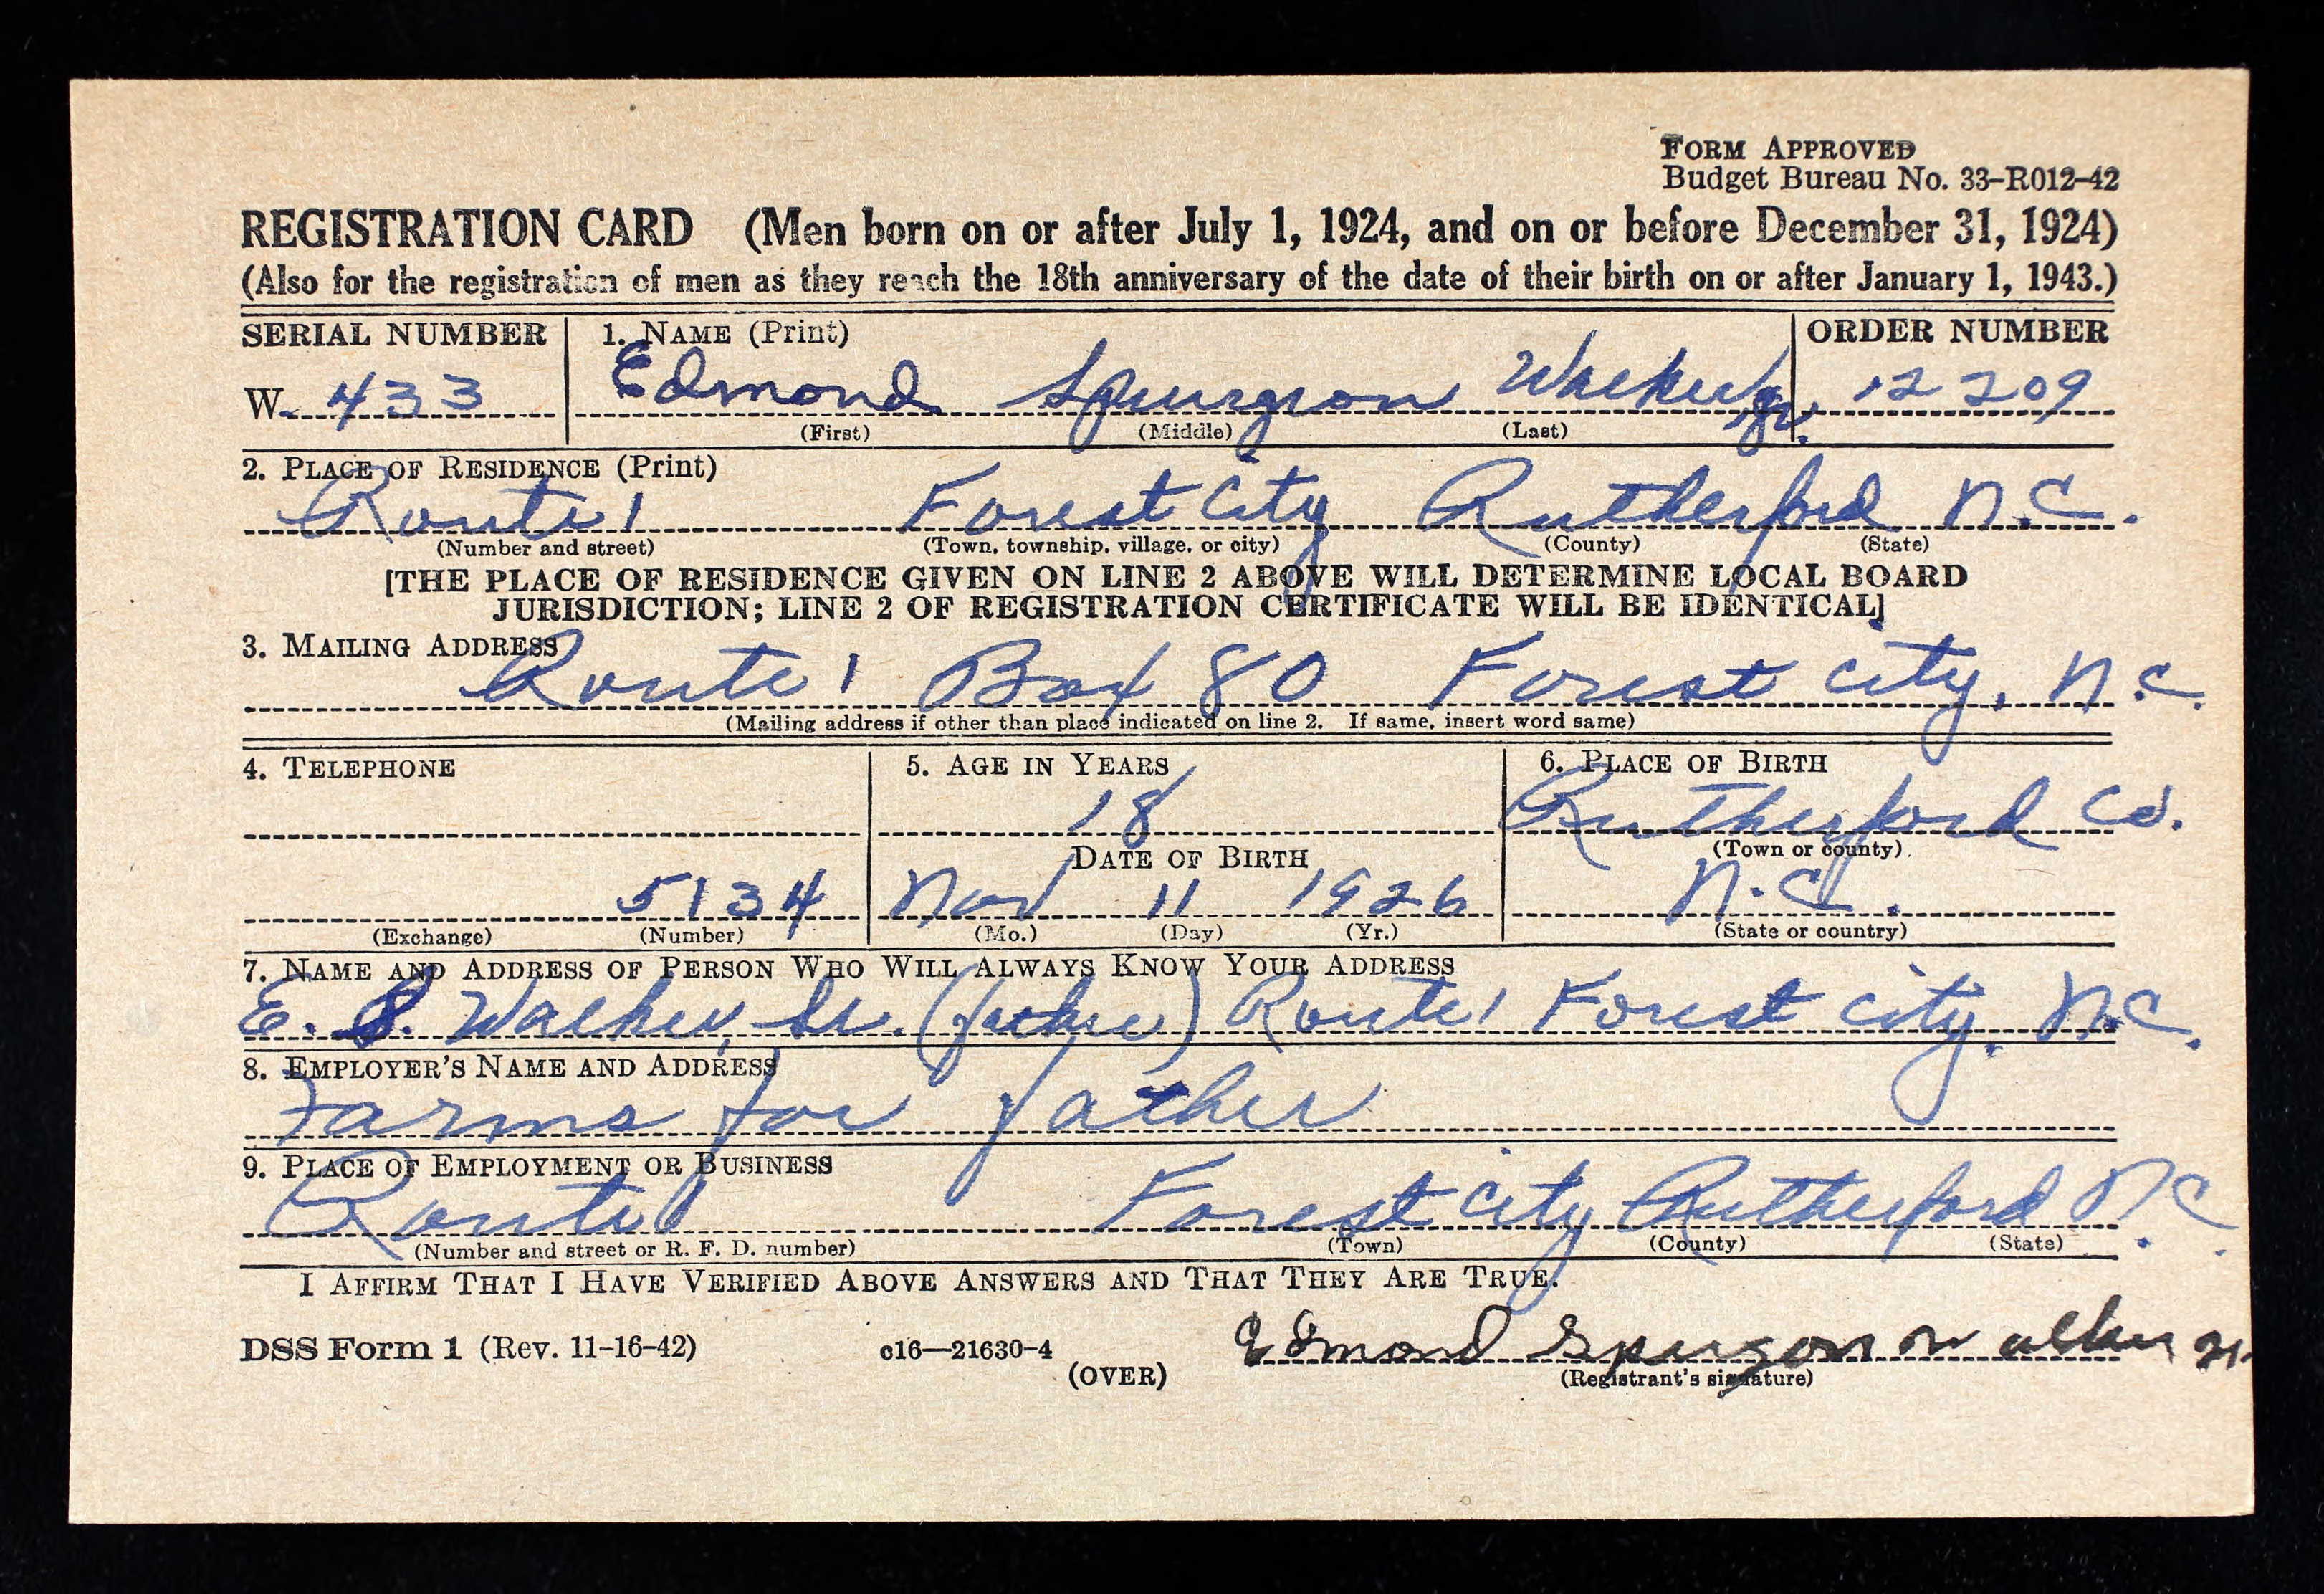 FORM APPROVED
Budget Bureau No. 33-R012-42
REGISTRATION CARD (Men born on or after July 1, 1924, and on or before December 31, 1924)
(Also for the registration of men as they reach the 18th anniversary of the date of their birth on or after January 1, 1943.)
SERIAL NUMBER 1. NAME (Print) ORDER NUMBER
W. 433 Edmond Spurgeon Walker Jr. 12209
(First) (Middle) (Last)
2. PLACE OF RESIDENCE (Print)
Route 1 Forest City Rutherford N.C.
(Number and street) (Town, township, village, or city) (County) (State)
[THE PLACE OF RESIDENCE GIVEN ON LINE 2 ABOVE WILL DETERMINE LOCAL BOARD
JURISDICTION; LINE 2 OF REGISTRATION CERTIFICATE WILL BE IDENTICAL]
3. MAILING ADDRESS
Route 1 Box 80 Forest City, N.C.
(Mailing address if other than place indicated on line 2. If same, insert word same)
4. TELEPHONE 5. AGE IN YEARS 6. PLACE OF BIRTH
18 Rutherford Co.
DATE OF BIRTH (Town or county)
5134 Nov 11 1926 N.C.
(Exchange) (Number) (Mo.) (Day) (Yr.) (State or country)
7. NAME AND ADDRESS OF PERSON WHO WILL ALWAYS KNOW YOUR ADDRESS
E. S. Walker, Sr. (father) Route 1 Forest City, N.C.
8. EMPLOYER'S NAME AND ADDRESS
Farms for father
9. PLACE OF EMPLOYMENT OR BUSINESS
Route 1 Forest City Rutherford N.C.
(Number and street or R. F. D. number) (Town) (County) (State)
I AFFIRM THAT I HAVE VERIFIED ABOVE ANSWERS AND THAT THEY ARE TRUE.
DSS Form 1 (Rev. 11-16-42) c16—21630-4 Edmond Spurgon Walker Jr.
(OVER) (Registrant's signature)